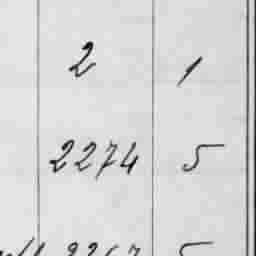 2 1
2274 5